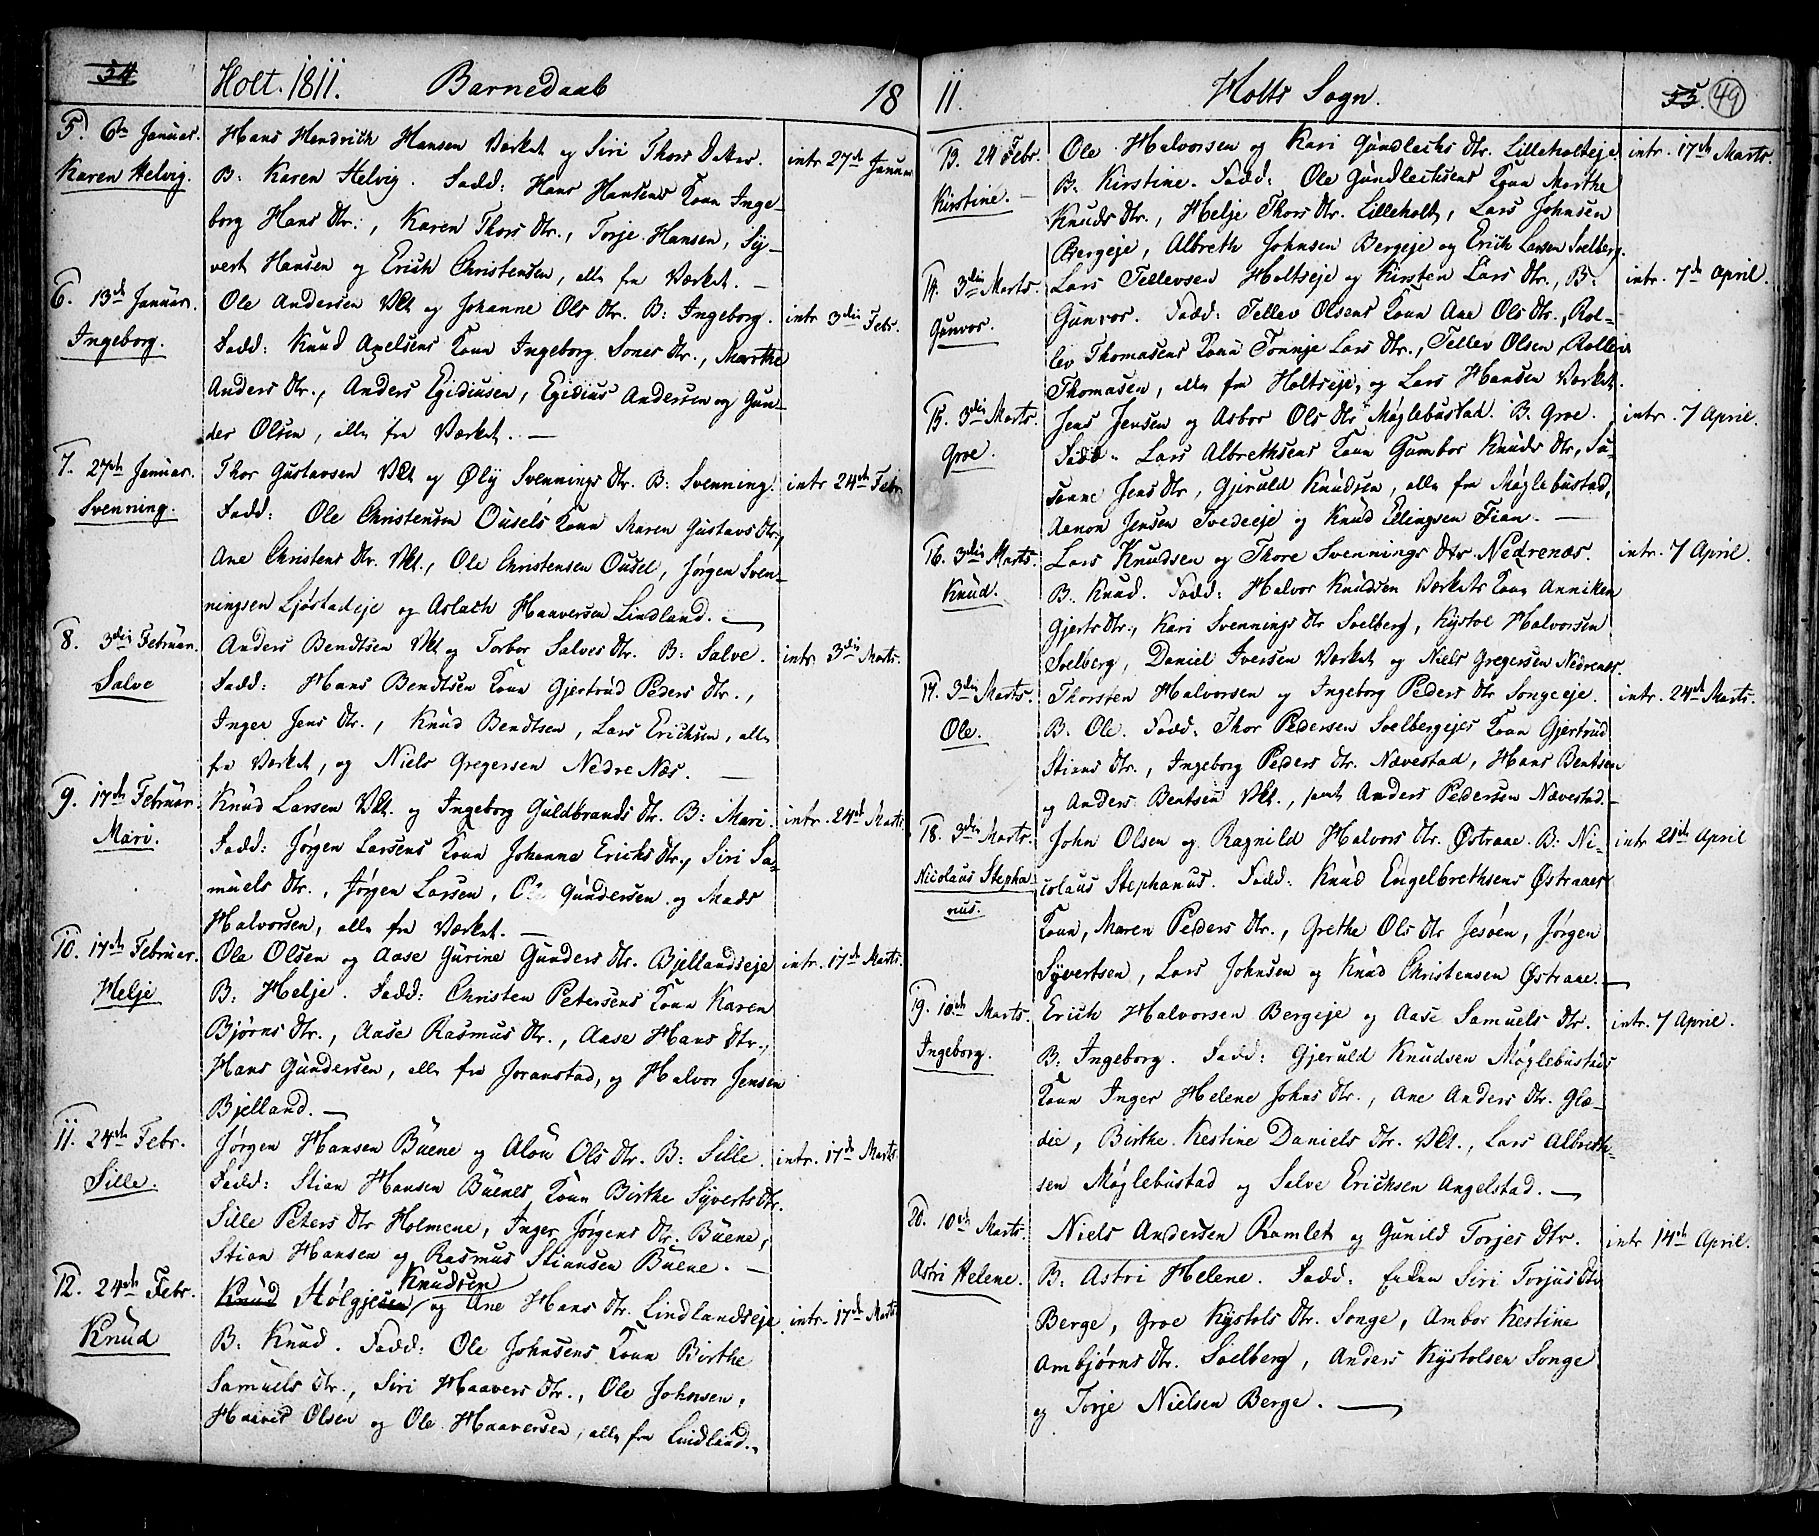 54
Holt. 1811. Barnedaab 18
5. 6te Januar.
Karen Helvig.
Hans Hendrich Hansen Værket og Siri Thors Datter.
B: Karen Helvig. Fadd: Hans Hansens Kone Inge-
borg Hans Dtr:, Karen Thors Dtr., Torje Hansen, Sy-
vert Hansen og Erich Christensen, alle fra Værket. —
intr. 27de Januar
6. 13de Januar.
Ingeborg.
Ole Andersen Vkt og Johanne Ols Dtr. B: Ingeborg.
Fadd: Knud Axelsens Kone Ingeborg Sones Dtr., Marthe
Anders Dtr., Anders Egidiusen, Egidius Andersen og Gun-
der Olsen, alle fra Værket. —
intr 3die Febr.
7. 27de Januar.
Svenning.
Thor Gustavsen Vkt og Øly Svennings Dtr. B: Svenning.
Fadd: Ole Christensen Ousels Kone Maren Gustavs Dtr,
Ane Christens Dtr. Vkt., Ole Christensen Ousel, Jørgen Sven-
ningsen Ljøstadeje og Aslach Haaversen Lindland. —
intr 24de Febr.
8. 3die Februar.
Salve
Anders Bendtsen Vkt og Torbor Salves Dtr. B: Salve.
Fadd: Hans Bendtsen Kone Gjertrud Peders Dtr.,
Inger Jens Dtr., Knud Bendtsen, Lars Ericksen, alle
fra Værket, og Niels Gregersen Nedre Næs. —
intr. 3die Marts.
9. 17de Februar.
Mari.
Knud Larsen Vkt. og Ingeborg Guldbrands Dtr. B: Mari.
Fadd: Jørgen Larsens Kone Johanna Ericks Dtr., Siri Sa-
muels Dtr., Jørgen Larsen, Ole Gundersen og Mads
Halvorsen, alle fra Værket. —
intr. 24de Marts
10. 17de Februar.
Helje
Ole Olsen og Aase Gurine Gunders Dtr. Bjellandseje
B: Helje. Fadd: Christen Petersens Kone Karen
Bjørns Dtr., Aase Rasmus Dtr., Aase Hans Dtr.,
Hans Gundersen, alle fra Joranstad, og Halvor Jensen
Bjelland. —
intr. 17de Marts.
11. 24de Febr.
Sille.
Jørgen Hansen Buene og Alou Ols Dtr. B: Sille.
Fadd: Stian Hansen Buenes Kone Birthe Syverts Dtr.
Sille Peters Dtr Holmene, Inger Jørgens Dtr. Buene,
Stian Hansen og Rasmus Stiansen Buene. —
intr. 17de Marts.
12. 24de Febr.
Knud
Knudsen
Knud Holgjesen og Ane Hans Dtr. Lindlandseje
B: Knud. Fadd: Ole Johnsens Kone Birthe
Samuels Dtr., Siri Haavers Dtr., Ole Johnsen,
Haaver Olsen og Ole Haaversen, alle fra Lindland.
intr. 17de Marts
11. Holts Sogn. 55. 49
13. 24 Febr.
Kirstine. —
Ole Halvorsen og Kari Gundlechs Dtr. Lilleholteje
B: Kirstine. Fadd: Ole Gundlechsens Kone Marthe
Knuds Dtr., Helje Thors Dtr. Lilleholt, Lars Johnsen
Bergeje, Albreth Johnsen Bergeje og Erich Larsen Solberg.
intr. 17de Marts.
14. 3die Marts.
Gunvor.
Lars Tellevsen Holtseje og Kirsten Lars Dtr., B:
Gunvor. Fadd: Tellev Olsens Kone Ane Ols Dtr., Rol-
lev Thomasens Kone Tonnje Lars Dtr., Tellev Olsen, Rollev
Thomasen, alle fra Holtseje, og Lars Hansen Værket.
intr. 7de April.
15. 3die Marts.
Groe.
Jens Jensen og Asbor Ols Dtr Møglebustad. B. Groe.
Fadd. Lars Albrethsens Kone Gumbor Knuds Dtr, Su-
sanne Jens Dtr, Gjeruld Knudsen, alle fra Møglebustad,
Aanon Jensen Tvedeeje og Knud Ellingsen Fian. —
intr. 7 April.
16. 3die Marts.
Knud.
Lars Knudsen og Thore Svennings Dtr. Nedrenæs.
B. Knud. Fadd: Halvor Knudsen Værkets Kone Anniken
Gjerts Dtr., Kari Svennings Dtr Solberg, Kystol Halvorsen
Solberg, Daniel Iversen Værket og Niels Gregersen Nedrenæs.
intr. 7 April.
17. 3die Marts.
Ole.
Thorsten Halvorsen og Ingeborg Peders Dtr Songeeje.
B. Ole. Fadd: Thor Pedersen Solbergejes Kone Gjertrud
Stians Dtr., Ingeborg Peders Dtr. Nævestad, Hans Bentsen
og Anders Bentsen Vkt., samt Anders Pedersen Nævestad. —
intr. 24de Marts.
18. 3die Marts.
Nicolaus Stepha
nus.
John Olsen og Ragnild Halvors Dtr. Østraae. B: Ni-
colaus Stephanus. Fadd: Knud Engelbrethsens Østraaes
Kone, Maren Peders Dtr., Grethe Ols Dtr Jesøen, Jørgen
Syvertsen, Lars Johnsen og Knud Christensen Østraae. —
intr 21de April
19. 10de Marts.
Ingeborg.
Erich Halvorsen Bergeje og Aase Samuels Dtr.
B: Ingeborg. Fadd: Gjeruld Knudsen Møglebustads
Kone Inger Helene Johns Dtr., Ane Anders Dtr. Glæ-
die, Birthe Kestine Daniels Dtr. Vkt., Lars Albreth-
sen Møglebustad og Salve Ericksen Angelstad. —
intr. 7 April.
20. 10de Marts.
Astri Helene.
Niels Andersen Ramlet og Gunild Torjes Dtr.
B: Astri Helene. Fadd: Enken Siri Torjus Dtr
Berge, Groe Kystols Dtr. Songe, Ambor Kestine
Ambjørns Dtr. Solberg, Anders Kystolsen Songe
og Torje Nielsen Berge. —
intr 14de April.